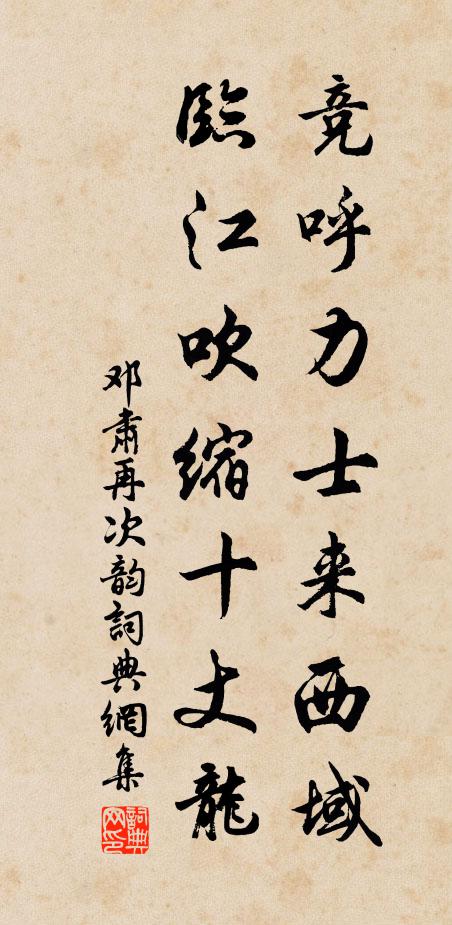 竞呼力士来西域
臨江吹缩十丈龍
邓肅再次韵詞典網集
詞典网印